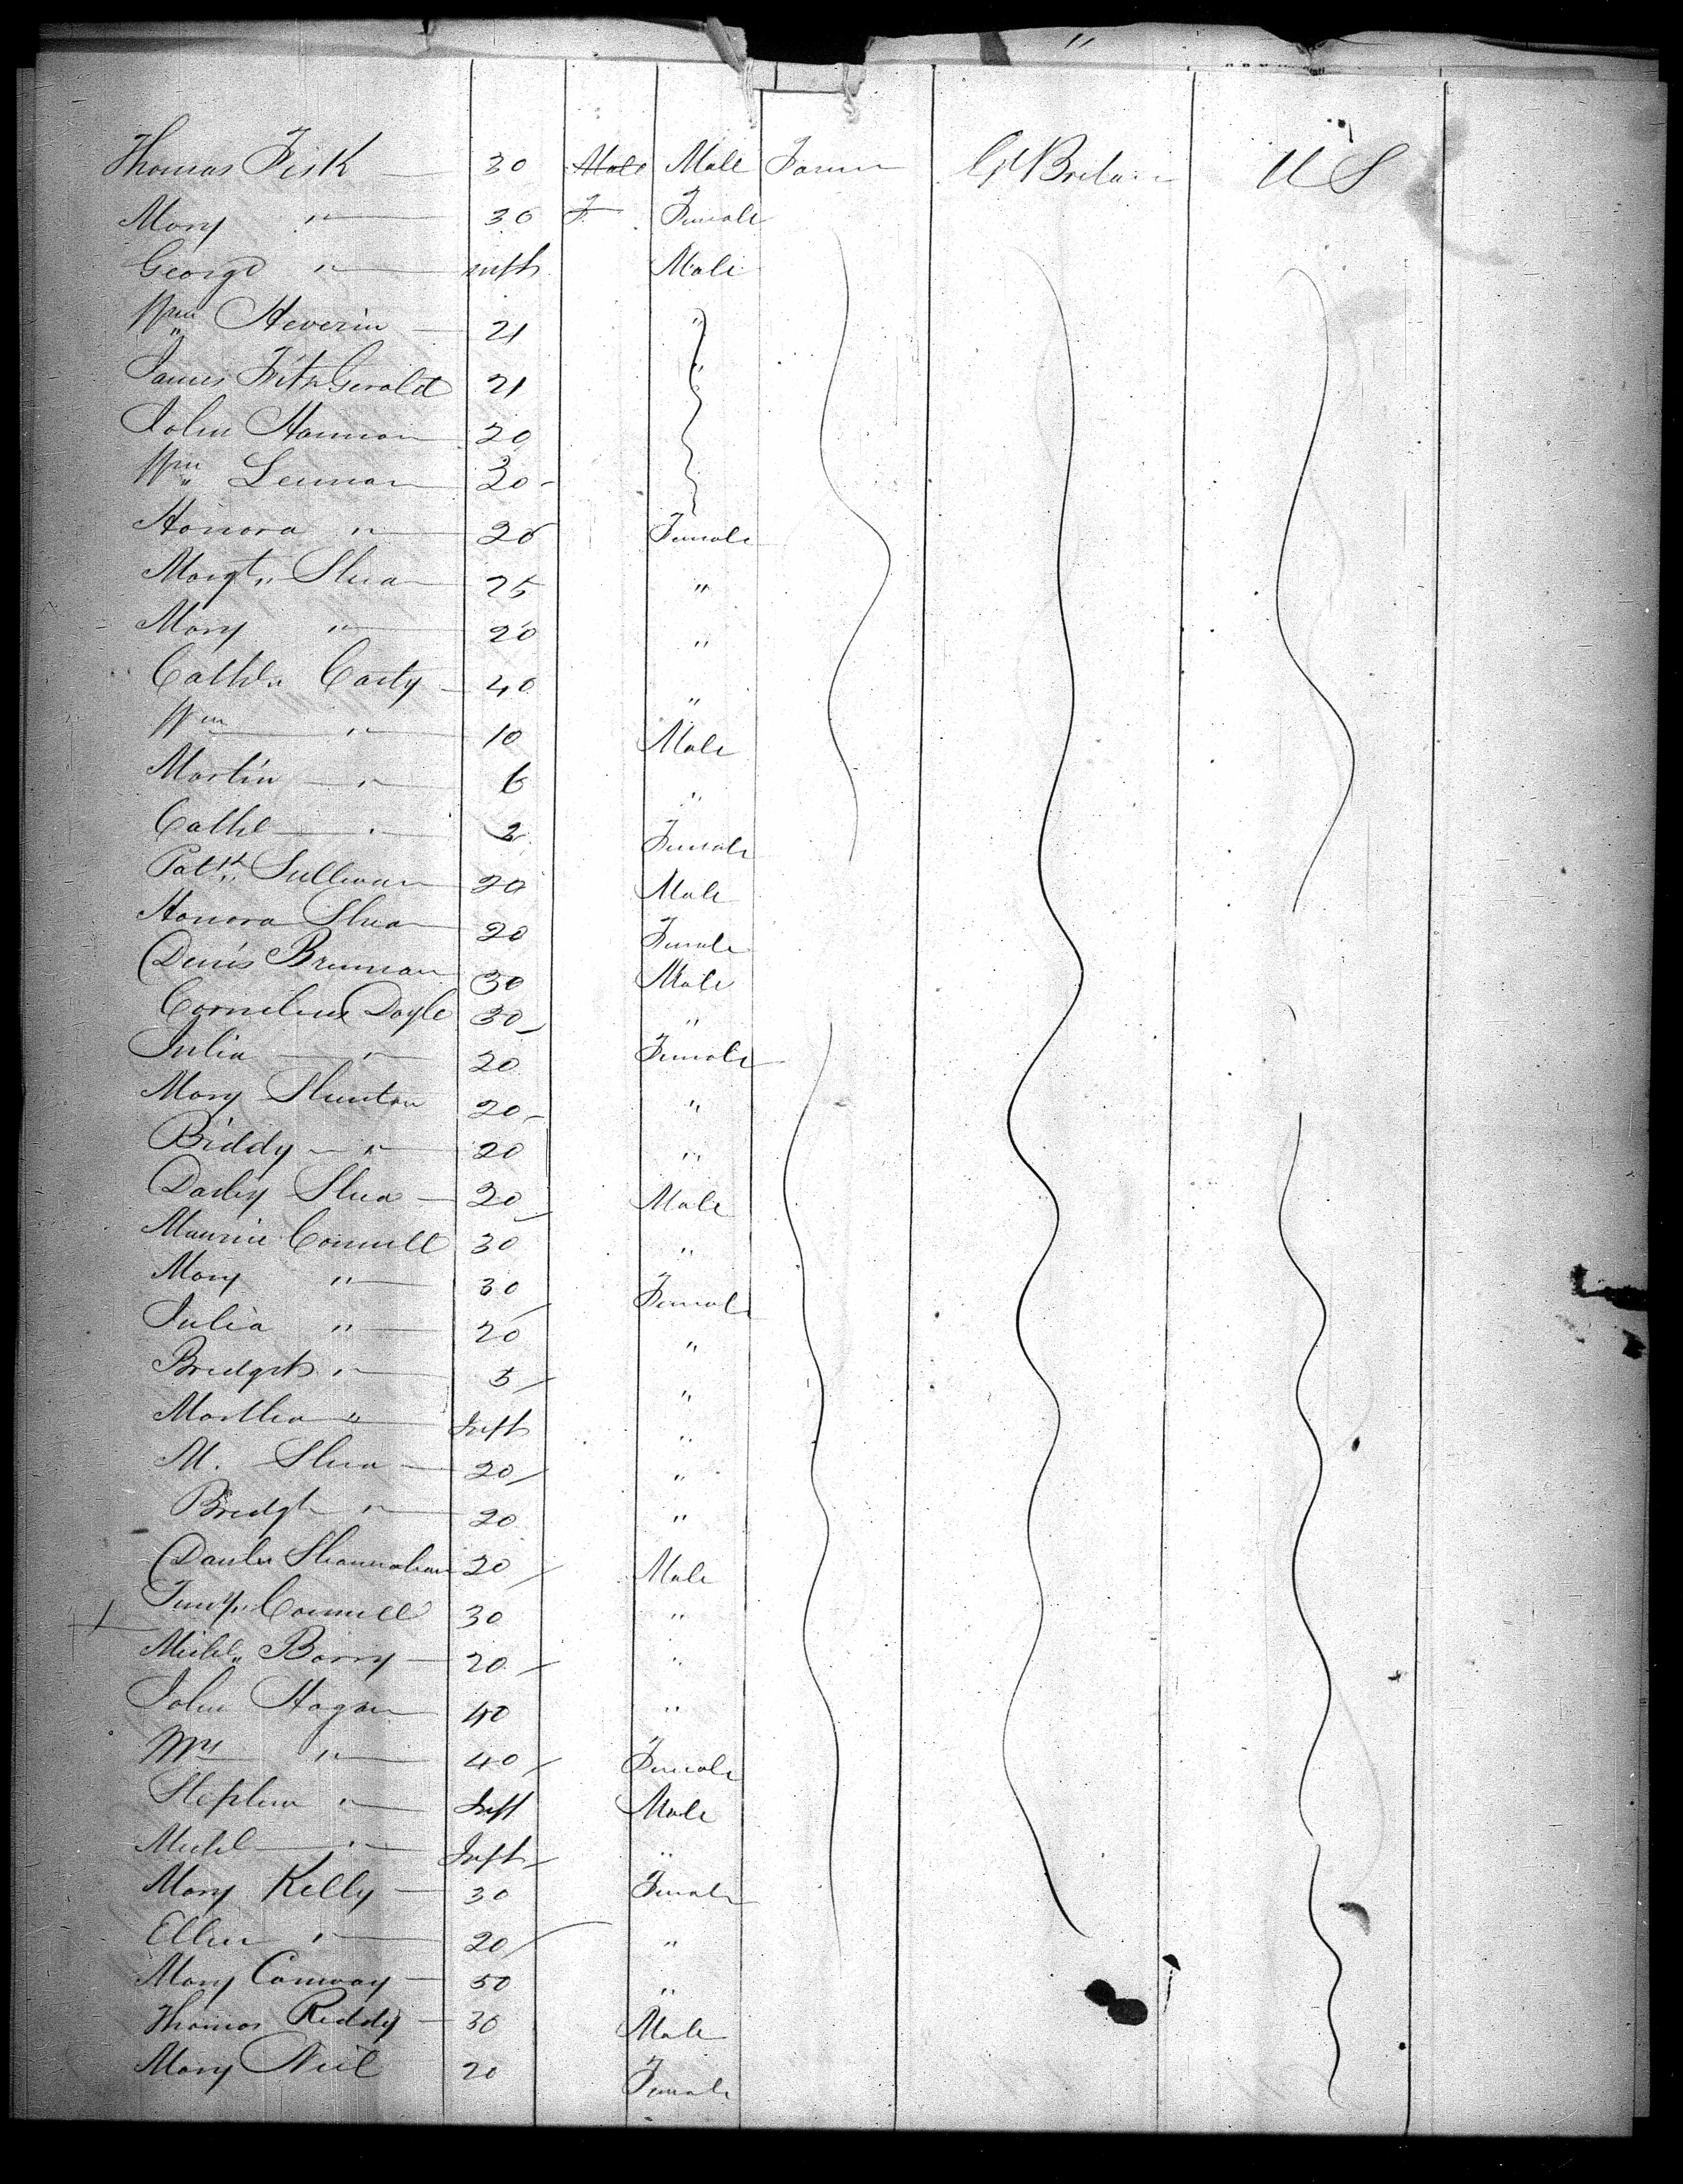 Thomas Fisk 30 Male Male Farmer Gt Britain U S
Mary " 30 F Female
George " infh Male
Wm Heverin 21 "
James FitzGerald 21 "
John Hannon 20
Wm Lennan 30
Honora " 20 Female
Margt Shea 25 "
Mary " 20 "
Cathe Carty 40 "
Wm " 10 Male
Martin " 6 "
Cathe " 2 Female
Patk Sullivan 20 Male
Honora Shea 20 Female
Denis Brennan 30 Male
Cornelius Doyle 30 "
Julia " 20 Female
Mary Shunton 20 "
Biddy " 20 "
Darby Shea 20 Male
Maurice Connell 30 "
Mary " 30 Female
Julia " 20 "
Bridget " 5 "
Martha " Inft "
M. Shea 20 "
Bridgt " 20 "
Danl Shannahan 20 Male
Timy Connell 30 "
Michl Barry 20 "
John Hogan 40 "
Mrs " 40 Female
Stephen " Inft Male
Michl " Inft "
Mary Kelly 30 Female
Ellen " 20 "
Mary Conway 50 "
Thomas Reddy 30 Male
Mary Neil 20 Female